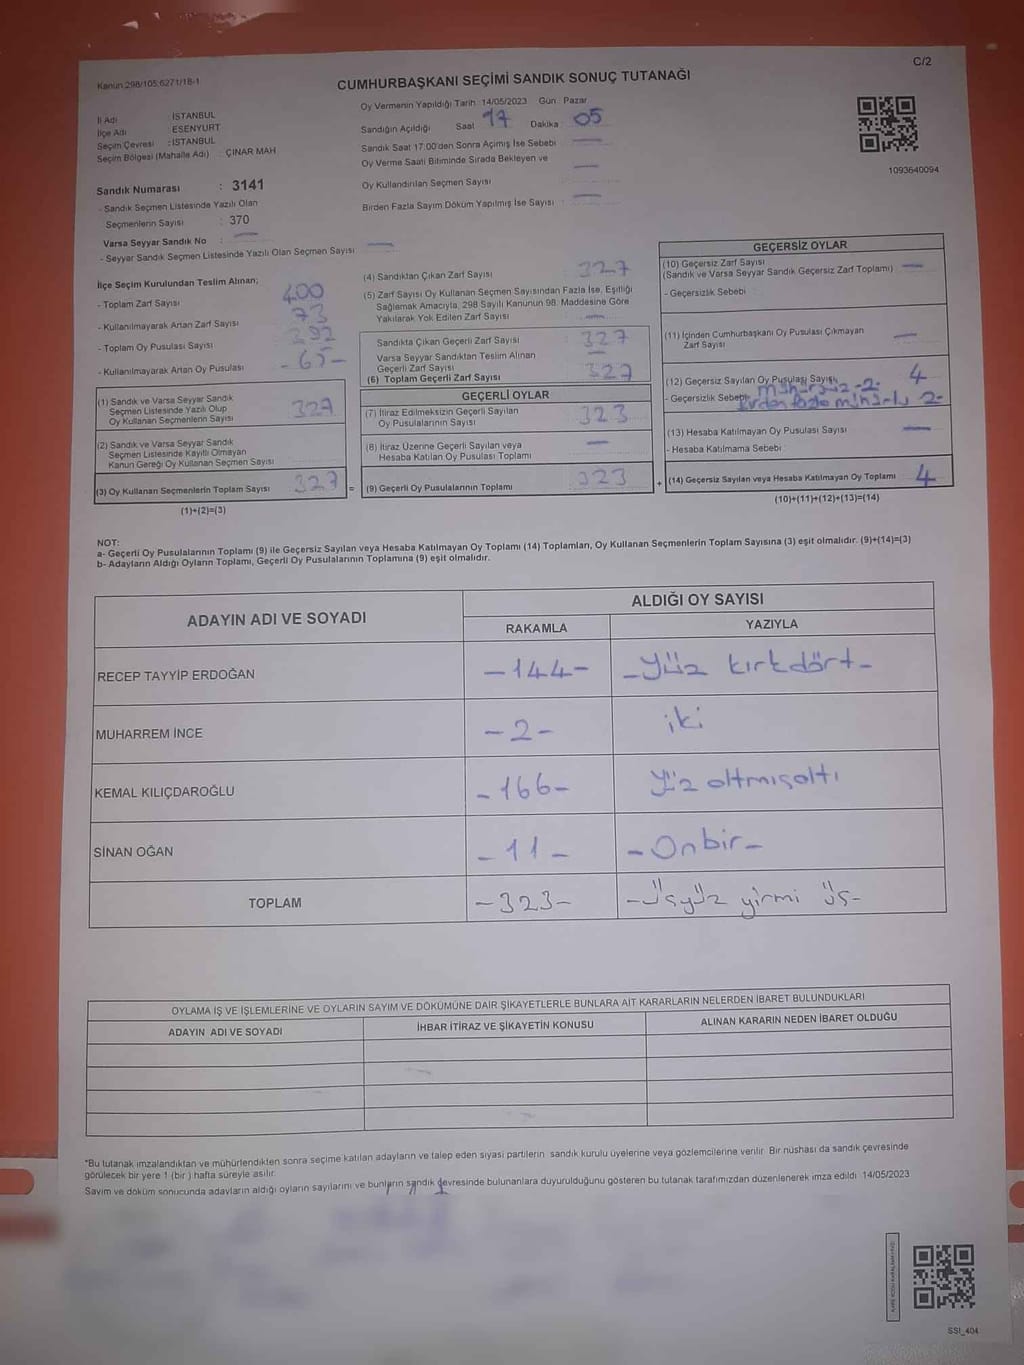 C/2
Kanun 298/105,6271/18-1
CUMHURBAŞKANI SEÇİMİ SANDIK SONUÇ TUTANAĞI
Oy Vermenin Yapıldığı Tarih 14/05/2023 Gün Pazar
İl Adı : İSTANBUL
İlçe Adı : ESENYURT
Seçim Çevresi : İSTANBUL
Seçim Bölgesi (Mahalle Adı) : ÇINAR MAH
Sandığın Açıldığı Saat 17 Dakika 05
Sandık Saat 17:00'den Sonra Açımış İse Sebebi —
Oy Verme Saati Bitiminde Sırada Bekleyen ve
Oy Kullandırılan Seçmen Sayısı —
Birden Fazla Sayım Döküm Yapılmış İse Sayısı —
1093640094
Sandık Numarası : 3141
- Sandık Seçmen Listesinde Yazılı Olan
Seçmenlerin Sayısı : 370
Varsa Seyyar Sandık No : —
- Seyyar Sandık Seçmen Listesinde Yazılı Olan Seçmen Sayısı —
İlçe Seçim Kurulundan Teslim Alınan;
- Toplam Zarf Sayısı 400
- Kullanılmayarak Artan Zarf Sayısı 73
- Toplam Oy Pusulası Sayısı 392
- Kullanılmayarak Artan Oy Pusulası - 65 -
(1) Sandık ve Varsa Seyyar Sandık
Seçmen Listesinde Yazılı Olup
Oy Kullanan Seçmenlerin Sayısı 327
(2) Sandık ve Varsa Seyyar Sandık
Seçmen Listesinde Kayıtlı Olmayan
Kanun Gereği Oy Kullanan Seçmen Sayısı
(3) Oy Kullanan Seçmenlerin Toplam Sayısı 327
(1)+(2)=(3)
(4) Sandıktan Çıkan Zarf Sayısı 327
(5) Zarf Sayısı Oy Kullanan Seçmen Sayısından Fazla İse, Eşitliği
Sağlamak Amacıyla, 298 Sayılı Kanunun 98. Maddesine Göre
Yakılarak Yok Edilen Zarf Sayısı —
Sandıkta Çıkan Geçerli Zarf Sayısı 327
Varsa Seyyar Sandıktan Teslim Alınan
Geçerli Zarf Sayısı —
(6) Toplam Geçerli Zarf Sayısı 327
GEÇERLİ OYLAR
(7) İtiraz Edilmeksizin Geçerli Sayılan
Oy Pusulalarının Sayısı 323
(8) İtiraz Üzerine Geçerli Sayılan veya
Hesaba Katılan Oy Pusulası Toplamı —
= (9) Geçerli Oy Pusulalarının Toplamı 323
GEÇERSİZ OYLAR
(10) Geçersiz Zarf Sayısı —
(Sandık ve Varsa Seyyar Sandık Geçersiz Zarf Toplamı)
- Geçersizlik Sebebi :
(11) İçinden Cumhurbaşkanı Oy Pusulası Çıkmayan
Zarf Sayısı —
(12) Geçersiz Sayılan Oy Pusulası Sayısı 4
- Geçersizlik Sebebi: mühürsüz -2-
Birden fazla mühürlü 2-
(13) Hesaba Katılmayan Oy Pusulası Sayısı —
- Hesaba Katılmama Sebebi :
+ (14) Geçersiz Sayılan veya Hesaba Katılmayan Oy Toplamı 4
(10)+(11)+(12)+(13)=(14)
NOT:
a- Geçerli Oy Pusulalarının Toplamı (9) ile Geçersiz Sayılan veya Hesaba Katılmayan Oy Toplamı (14) Toplamları, Oy Kullanan Seçmenlerin Toplam Sayısına (3) eşit olmalıdır. (9)+(14)=(3)
b- Adayların Aldığı Oyların Toplamı, Geçerli Oy Pusulalarının Toplamına (9) eşit olmalıdır.
ADAYIN ADI VE SOYADI
ALDIĞI OY SAYISI
RAKAMLA YAZIYLA
RECEP TAYYİP ERDOĞAN -144- -Yüz kırkdört-
MUHARREM İNCE -2- iki
KEMAL KILIÇDAROĞLU -166- Yüz altmışaltı
SİNAN OĞAN -11- -Onbir-
TOPLAM -323- -Üçyüz yirmi üç-
OYLAMA İŞ VE İŞLEMLERİNE VE OYLARIN SAYIM VE DÖKÜMÜNE DAİR ŞİKAYETLERLE BUNLARA AİT KARARLARIN NELERDEN İBARET BULUNDUKLARI
ADAYIN ADI VE SOYADI İHBAR İTİRAZ VE ŞİKAYETİN KONUSU ALINAN KARARIN NEDEN İBARET OLDUĞU
*Bu tutanak imzalandıktan ve mühürlendikten sonra seçime katılan adayların ve talep eden siyasi partilerin sandık kurulu üyelerine veya gözlemcilerine verilir. Bir nüshası da sandık çevresinde
görülecek bir yere 1 (bir) hafta süreyle asılır.
Sayım ve döküm sonucunda adayların aldığı oyların sayılarını ve bunların sandık çevresinde bulunanlara duyurulduğunu gösteren bu tutanak tarafımızdan düzenlenerek imza edildi 14/05/2023
SSI_404